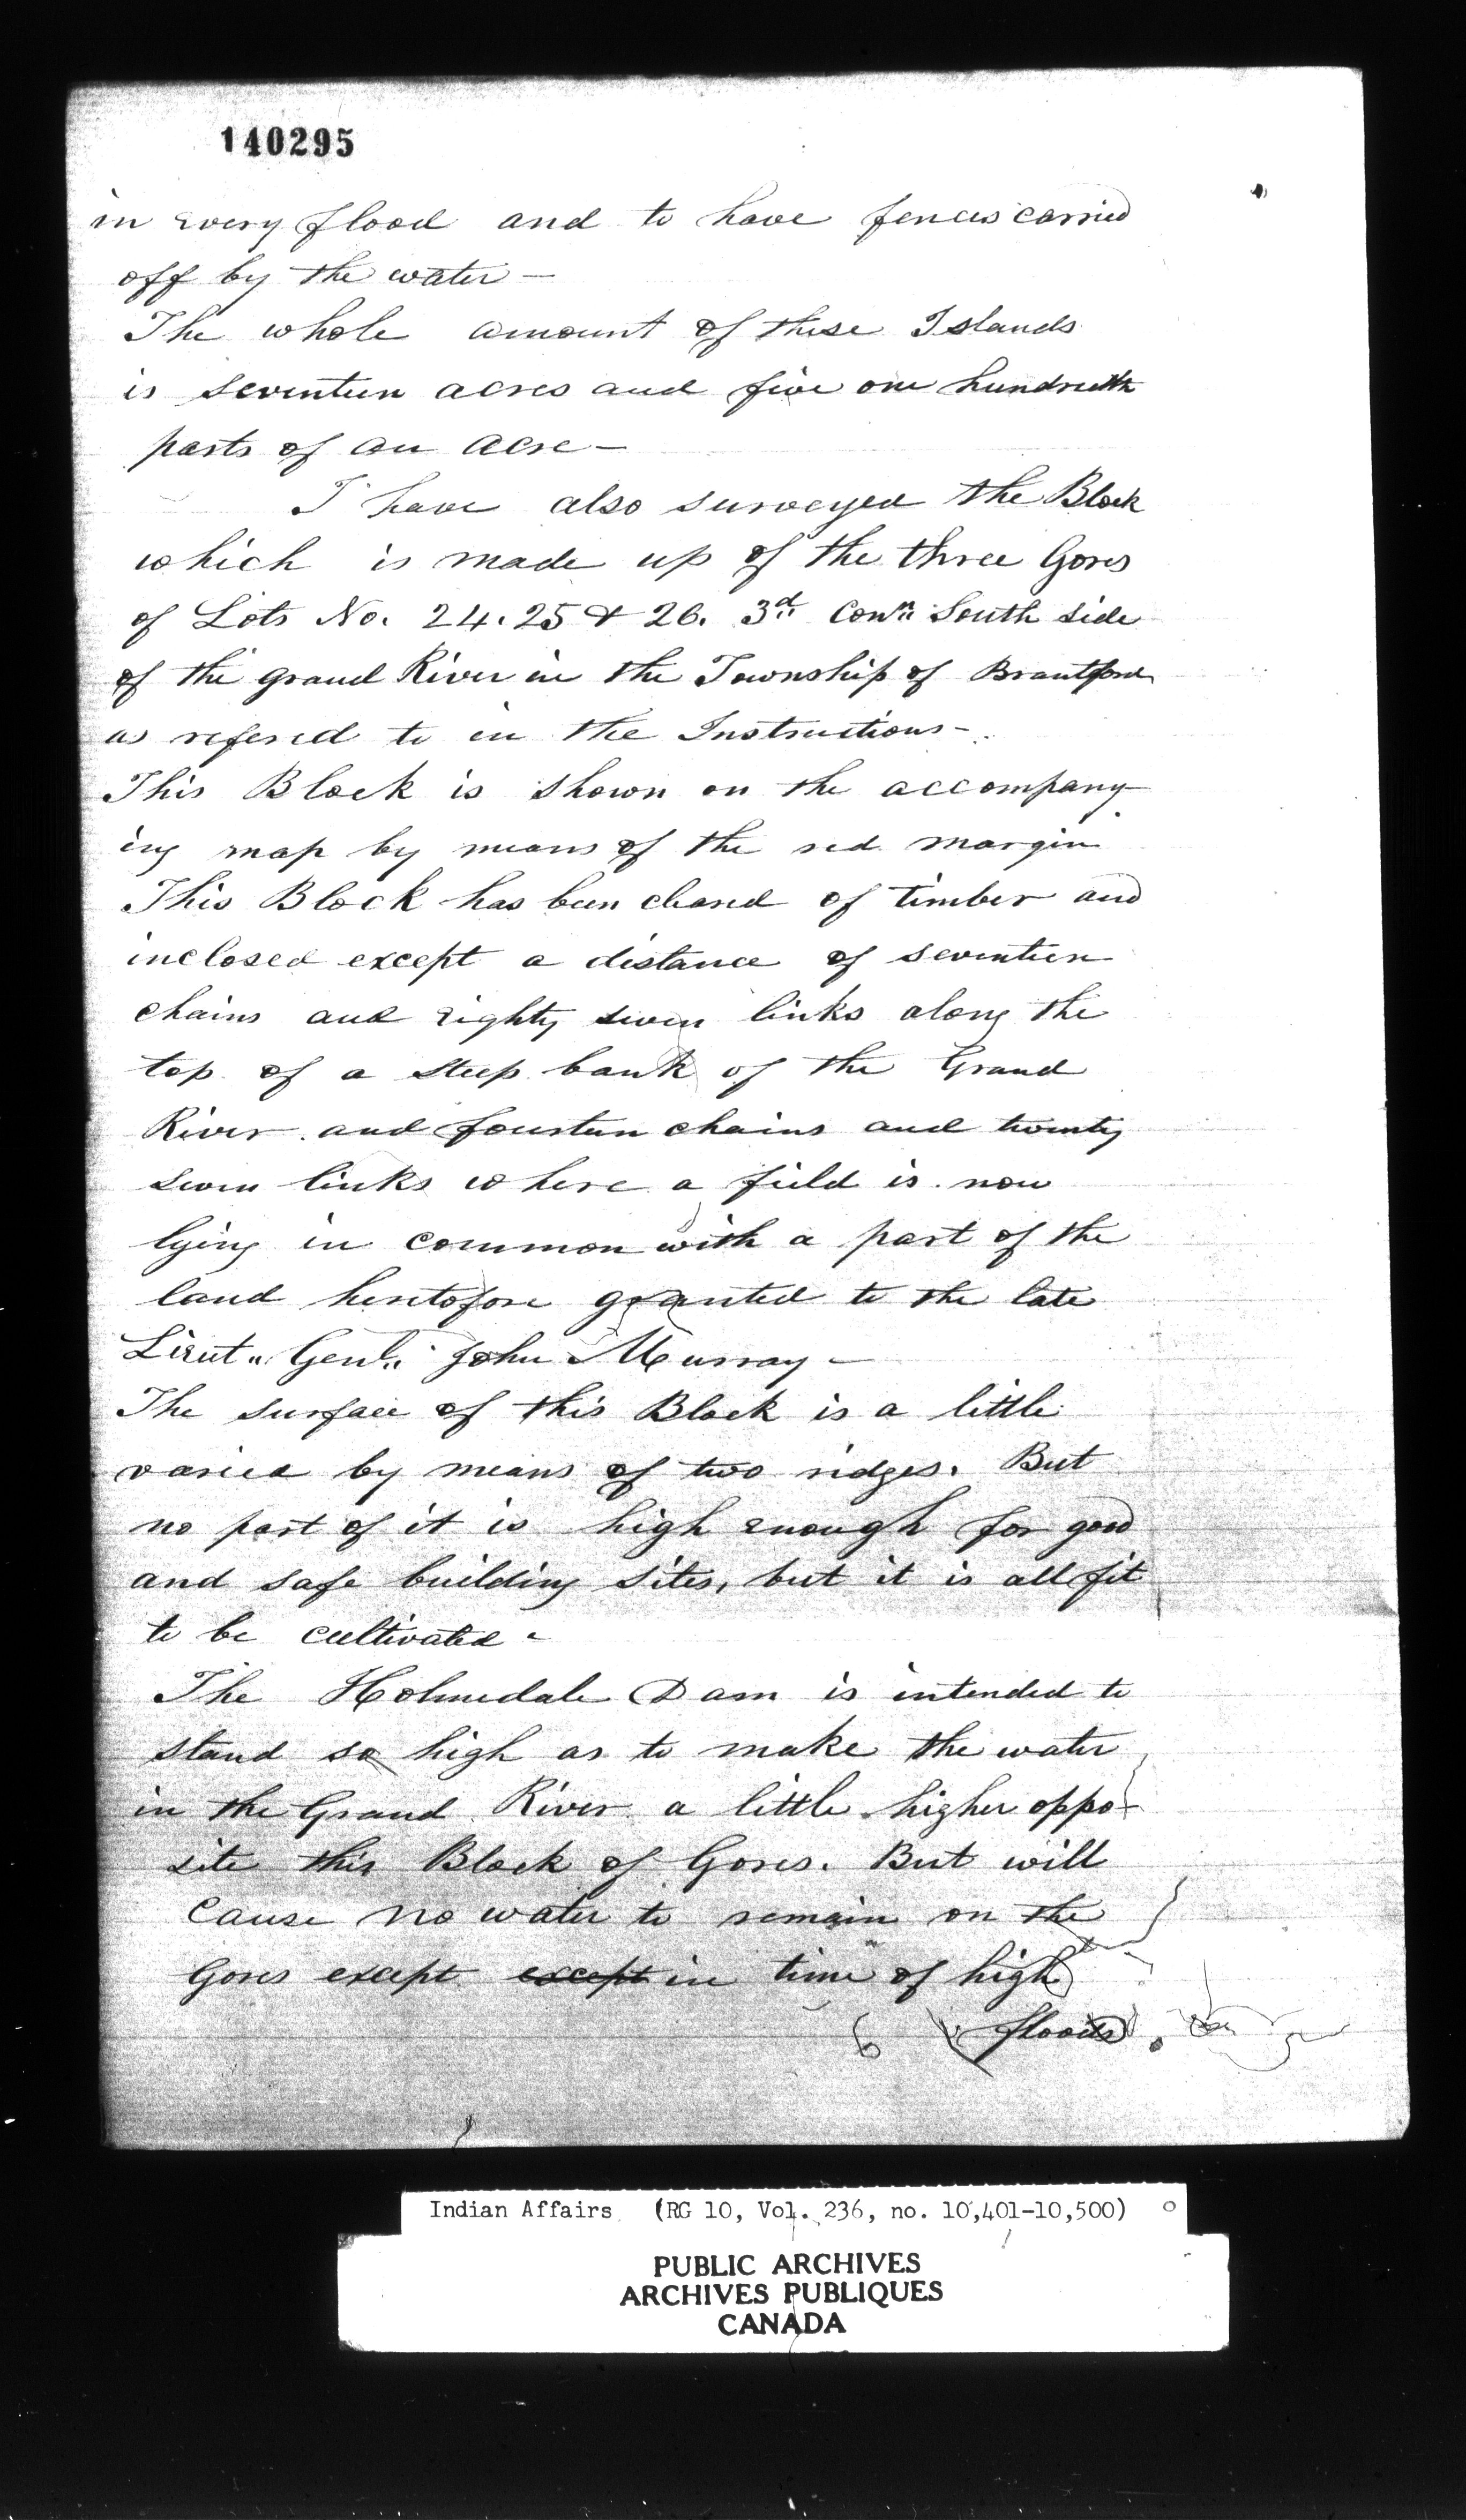 140295
in every flood and to have fences carried
off by the water —
The whole amount of these Islands
is seventeen acres and five one hundredth
parts of an acre —
I have also surveyed the Block
which is made up of the three Gores
of Lots No. 24. 25 & 26. 3d Conn South side
of the grand River in the Township of Brantford
as refered to in the Instructions -
This Block is shown on the accompany-
ing map by means of the red margin
This Block has been cleared of timber and
inclosed except a distance of seventeen
chains and eighty seven links along the
top of a steep bank of the Grand
River and fourteen chains and twenty
seven links where a field is now
lying in common with a part of the
land heretofore granted to the late
Lieut. Genl. John Murray —
The surface of this Block is a little
varied by means of two ridges. But
no part of it is high enough for good
and safe building sites, but it is all fit
to be cultivated -
The Holmedale Dam is intended to
stand so high as to make the water
in the Grand River a little higher oppo-
site this Block of Gores. But will
cause no water to remain on the
Gores except except in time of high
floods
Indian Affairs (RG 10, Vol. 236, no. 10,401-10,500)
PUBLIC ARCHIVES
ARCHIVES PUBLIQUES
CANADA